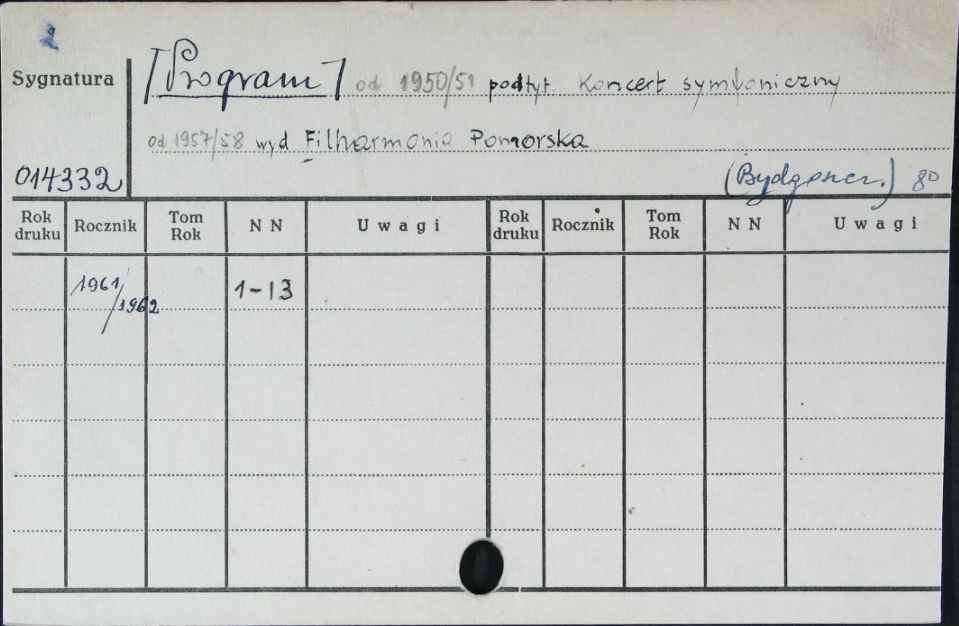 2
Sygnatura
[Program] od 1950/51 podtyt. Koncert symfoniczny
od 1957/58 wyd Filharmonia Pomorska
014332
(Bydgoszcz.) 8º
Rok druku Rocznik Tom Rok N N Uwagi Rok druku Rocznik Tom Rok N N Uwagi
1961/1962 1-13